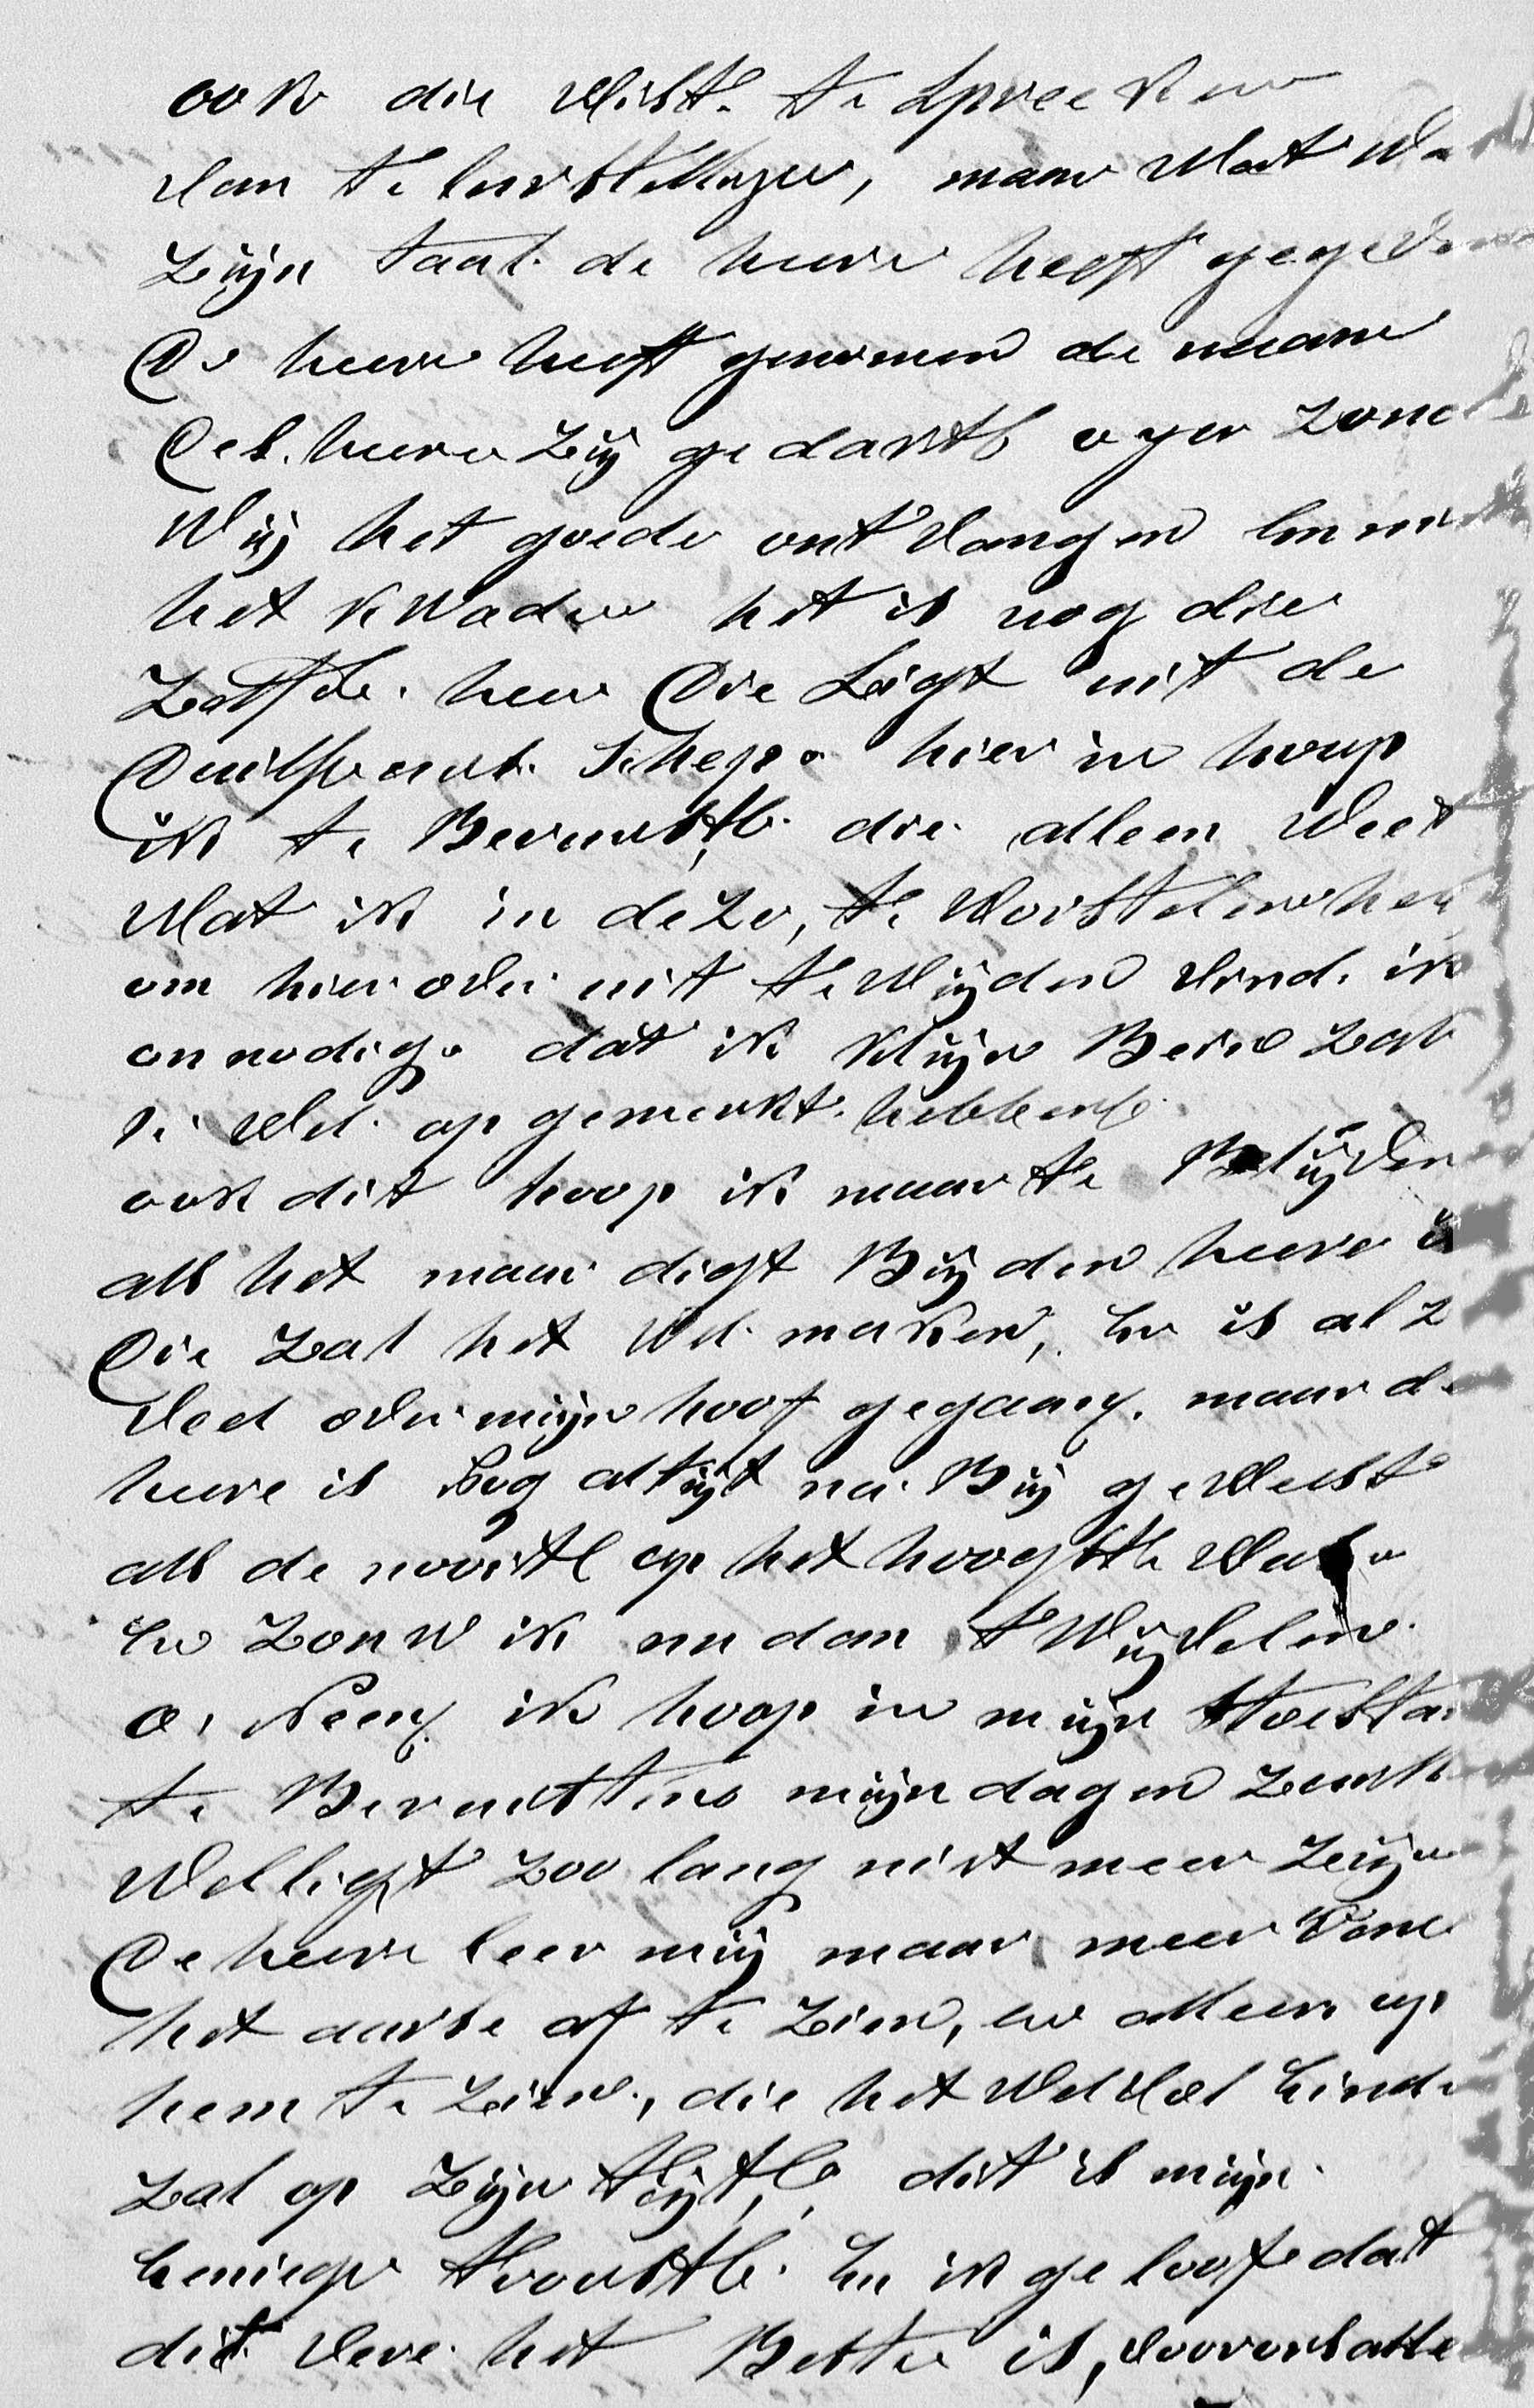 ook die Wist te Spreeken
van te leurstellingen, maar Wat Wa
Zijn taal de heere heeft gegeven
De heere heeft genomen de naam
Des heere Zij gedankt ogen Zoude
Wij het goede ont Vangen En niet
het kwade het is nog die
Zelfde heer Die Ligt uit de
Duisternis Schep hier in hoop
ik te Berusten die alleen Weet
Wat ik in deze, te Worstelen heb
om hier over uit te Wijden Vind ik
onnodig dat ik klijn Been Zal
U Wel op gemerkt hebben
ook dit hoop ik maar te Belijden
als het maar digt Bij den heere is
Die Zal het Wel maken, En is al Z
Veel over mijn hooft gegaan maar de
heere is Nog altijt na Bij geWeest
als de noodt op het hoogste Was
En Zouw ik nu dan tWijvelen
o, Neen ik hoop in mijn toesta
te Berusten mijn dagen Zulle
Welligt Zoo lang niet meer Zijn
De heere leer mij maar meer Van
het aarse af te Zien, en alleen op
hem te Zien, die het Wel Vol Einde
Zal op Zijn tijt, dit is mijn
Eenige troost En ik geloof dat
dit Vere het Beste is, voor ons alle